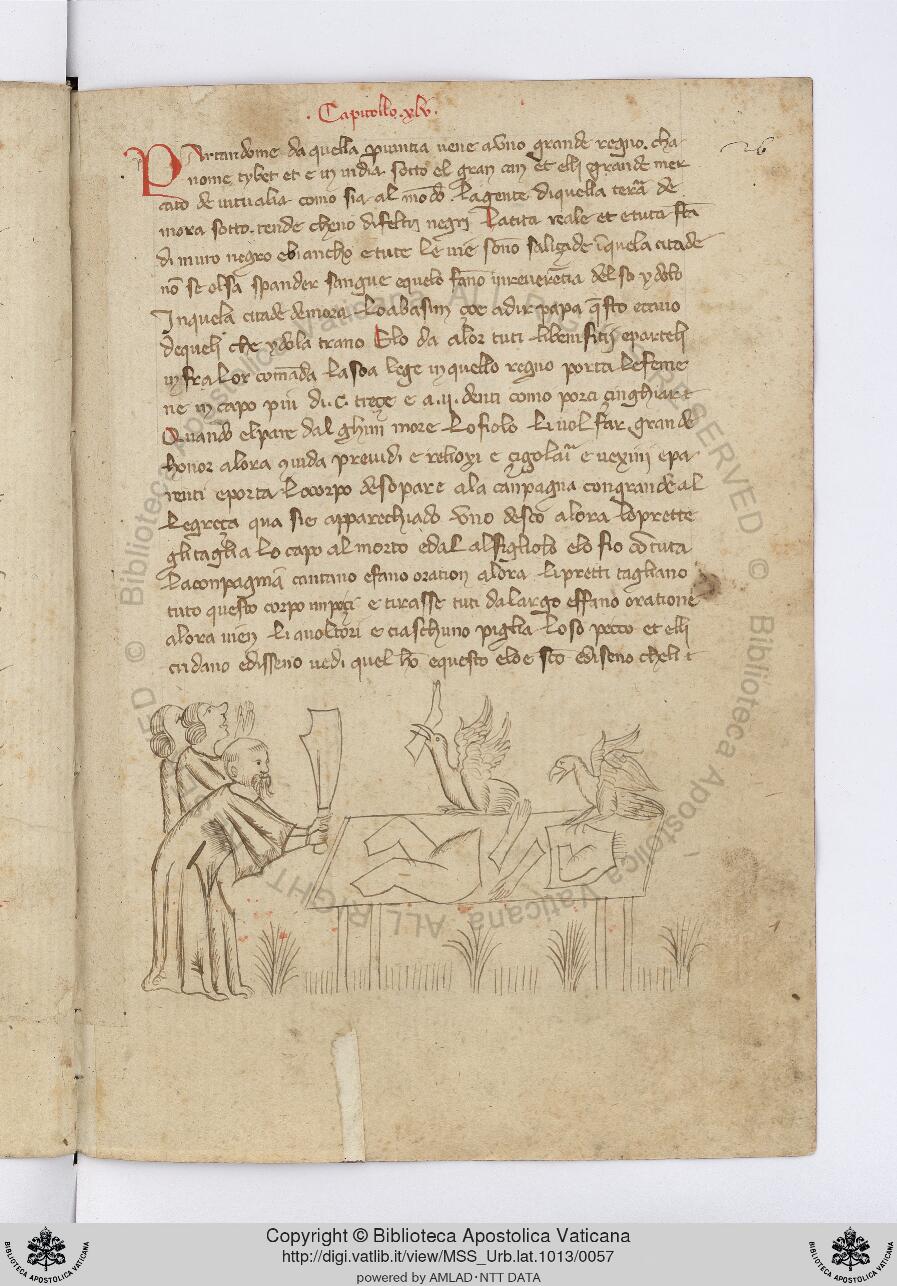 .Capitollo.xlv.
26
PArtandome da quella puintia uene a Vno grande regno. cha
nome tybet et e in india sotto el gran can et elli grande mer
cato de uitualia como sia al mōdo. La gente di quella terā de
mora sotto. tende cheno di feltri negri. La cita reale et e tuta fta
di muro negro e biancho e tute le uie sono saliçade īquela citade
nō se olsa spander sangue e quelo fano in reuerētia del so ydolo
In quela citade demora. Lo abasin çoe a dir papa q̄sto e cauo
de queli che ydola trano Elo da a lor tuti li benifitij e parteli
in fra lor comāda la soa lege in quello regno porta le feme
ne in capo piu di .c. treçe e a .ii. denti como porci çinghiari
Quando el pare dal ghuni more Lo fiolo li uol far grande
honor alora quida preuidi e relioxi e çigolaū e uexini e pa
renti e porta lo corpo de so pare a la canpagna con grande al
legreça qua sie apparechiado Vno desco alora lo prette
gli taglia lo capo al morto e dal al figliolo elo fio cō tuta
la conpagnia cantano e fano oration alora li pretti tagliano
tuto questo corpo in peçi e tirasse tuti da largo e ffano oratione
alora uien li auoltori e ciaschuno piglia lo so peço et elli
cridano e disseno uedi quel hō e questo elo e sc̄o e diseno che li
© Biblioteca Apostolica Vaticana ALL RIGHTS RESERVED
Copyright © Biblioteca Apostolica Vaticana
http://digi.vatlib.it/view/MSS_Urb.lat.1013/0057
powered by AMLAD·NTT DATA
BIBLIOTECA APOSTOLICA VATICANA
BIBLIOTECA APOSTOLICA VATICANA